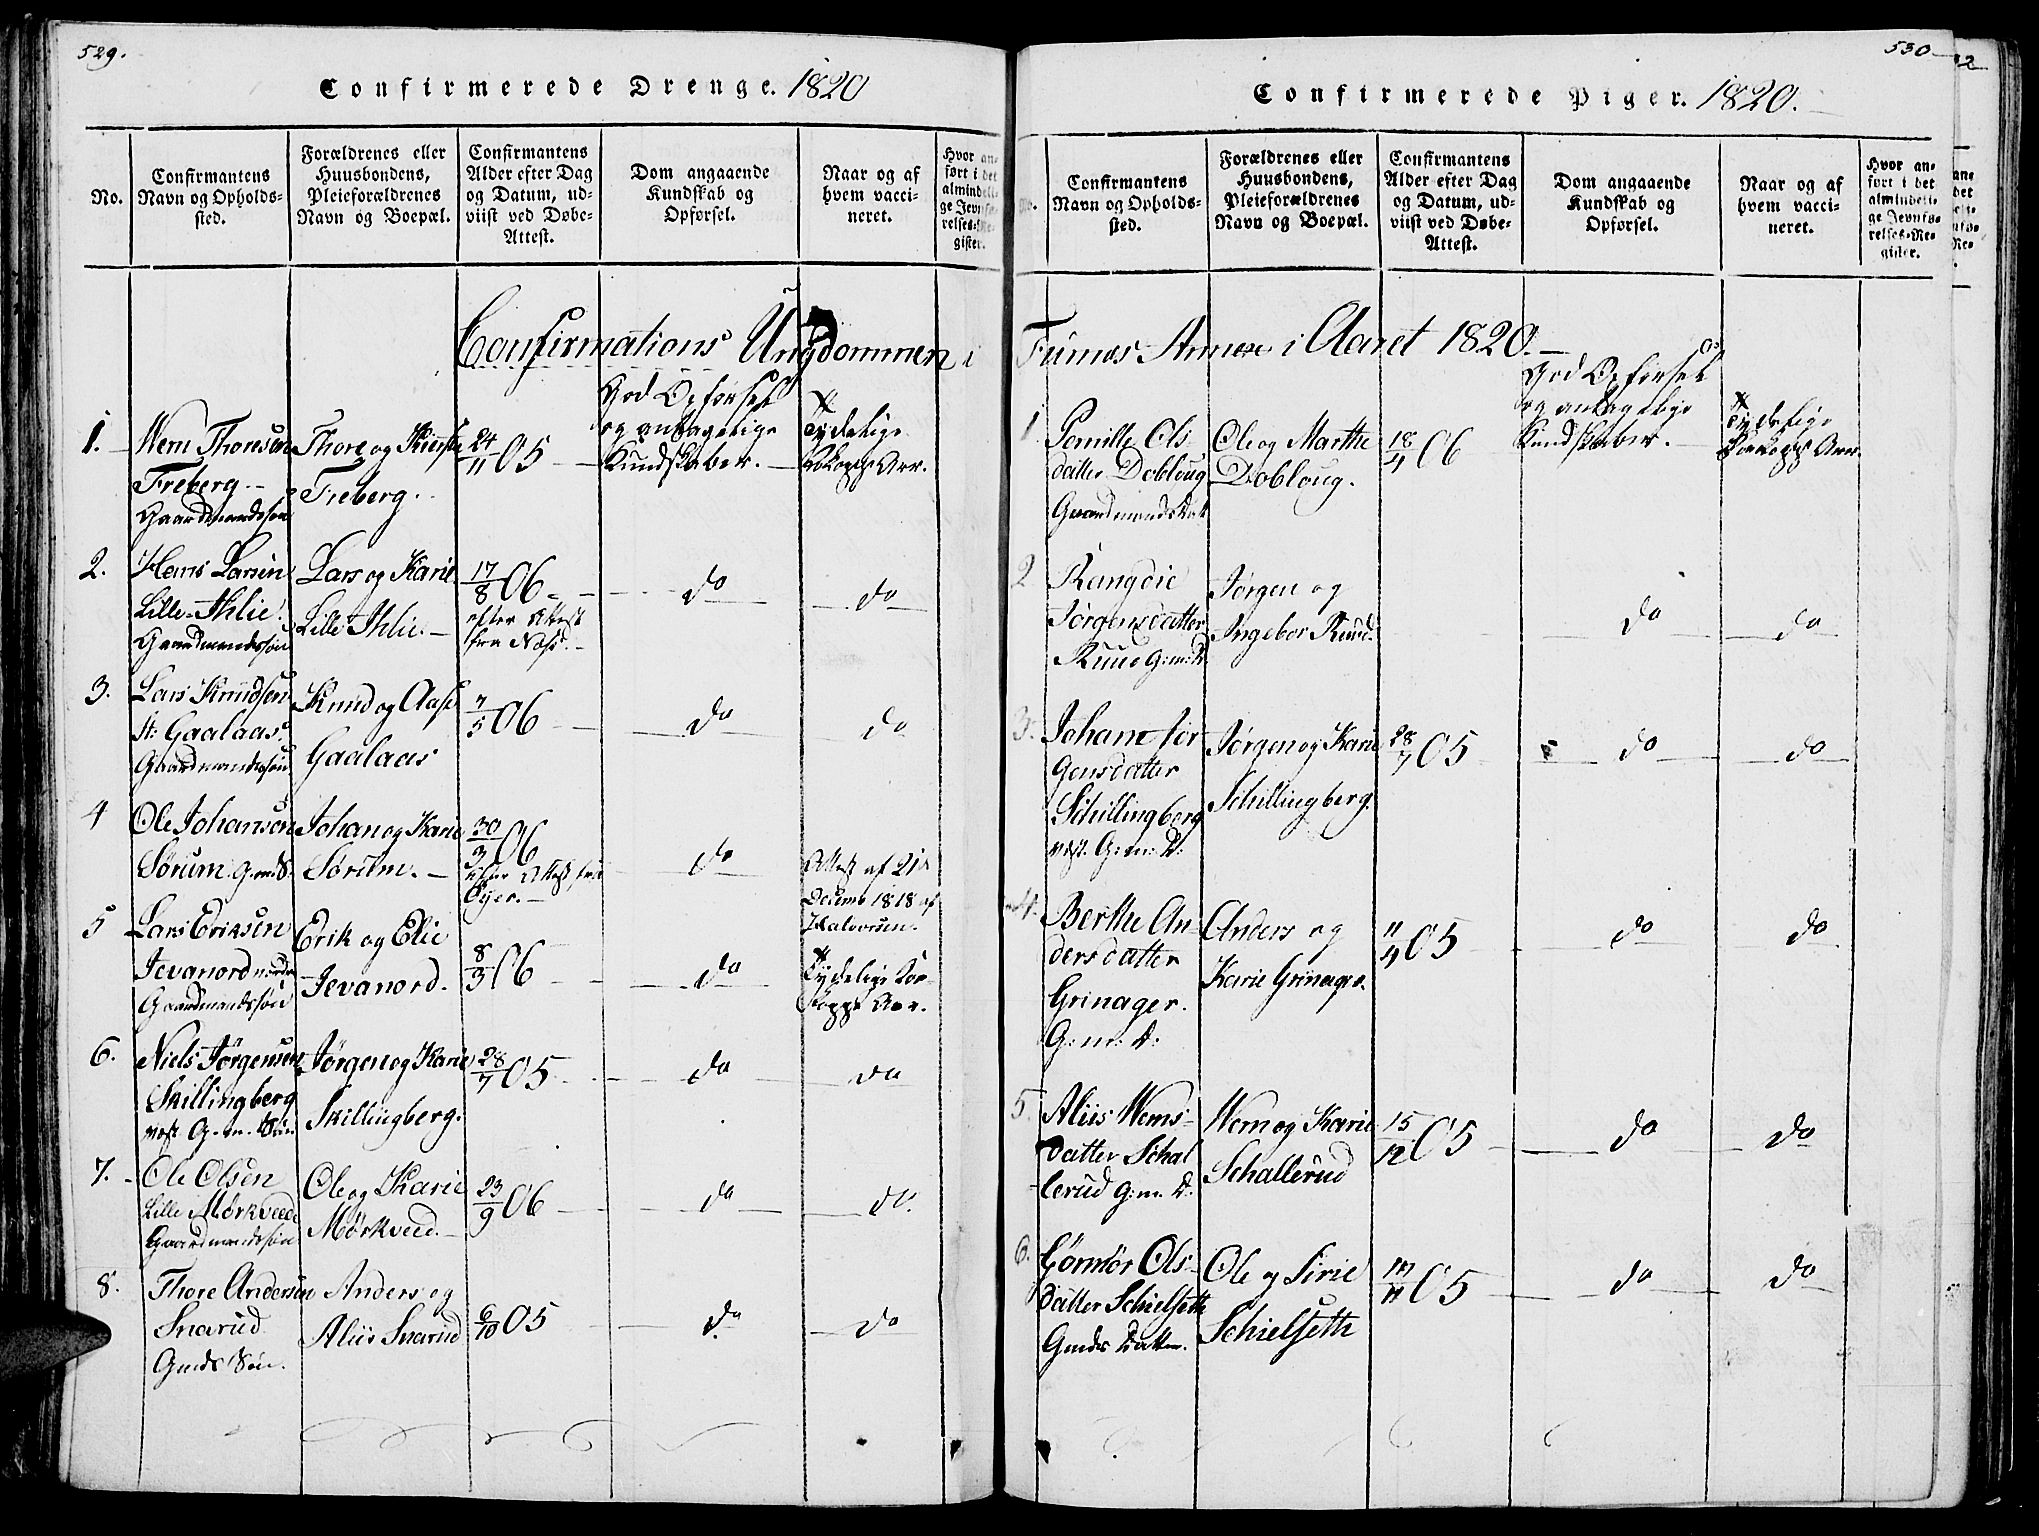 529.
Confirmerede Drenge. 1820
No.
Confirmantens
Navn og Opholds-
sted.
Forældrenes eller
Huusbondens,
Pleieforældrenes
Navn og Boepæl.
Confirmantens
Alder efter Dag
og Datum, ud-
viist ved Døbe-
Attest.
Dom angaaende
Kundskab og
Opførsel.
Naar og af
hvem vacci-
neret.
Hvor an-
ført i det
almindeli-
ge Jevnfø-
relses-Re-
gister.
Confirmations Ungdommen i
1. Wern Thoresen
Freberg.
Gaardmandssøn
Thore og
Freberg.
24/11 05
God Opførsel
og antagelige
Kundskaber.
Tydelige
Kokopps Arr.
2. Hans Larsen
Lille-Ihlie.
Gaardmandssøn
Lars og Karie
Lille Ihlie.
17/8 06
efter Attest
fra Næss.
do
do
3. Lars Knudsen
st: Gaalaas
Gaardmandssøn
Knud og Aase
Gaalaas
7/5 06
do
do
4 Ole Johansen
Sørum G:m:S.
Johan og Karie
Sørum.
30/3 06
Attest fra
Øyer.
do
Attest af 21de
Decemb 1818 af
Halvorsen.
5 Lars Eriksen
Jevanord nordre
Gaardmandssøn
Erik og Elie
Jevanord.
8/3 06
do
Tydelige Koe-
kopps Arr.
6. Niels Jørgensen
Skillingberg
vest. G. m. Søn
Jørgen og Karie
Skillingberg.
28/7 05
do
do
7. Ole Olsen
Lille Mørkveed
Gaardmandssøn
Ole og Karie
Mørkveed.
23/9 06
do
do.
8. Thore Andersen
Snarud
Gmds Søn.
Anders og
Aliis Snarud
6/10 05
do
do
530
Confirmerede Piger. 1820.
Confirmantens
Navn og Opholds-
sted.
Forældrenes eller
Huusbondens,
Pleieforældrenes
Navn og Boepæl.
Confirmantens
Alder efter Dag
og Datum, ud-
viist ved Døbe-
Attest.
Dom angaaende
Kundskab og
Opførsel.
Naar og af
hvem vacci-
neret.
Hvor an-
ført i det
almindeli-
ge Jevnfø-
relses-Re-
gister.
Furnes Annex i Aaret 1820.
1 Pernille Ols-
datter Dobloug
Gaardmandsdatt
Ole og Marthe
Dobloug.
18/4 06
God Opførsel
og antagelige
Kundskaber.
Tydelige
Koekopps Arr.
2 Rangdie
Jørgensdatter
Ruud G:m:D
Jørgen og
Ingebor Ruud
do
do
3. Johane Jør
gensdatter
Schillingberg
vest. G:m: D:
Jørgen og Karie
Schillingberg.
28/7 05
do
do
4. Berthe An-
dersdatter
Grinager.
G:m: D:
Anders og
Karie Grinager.
11/4 05
do
do
5. Aliis Wems-
datter Schal
lerud G:m: D:
Wem og Karie
Schallerud
15/12 05
do
do
6. Gørnør Ols-
datter Schielseth
Gmds Datter.
Ole og Sirie
Schielseth
05
do
do